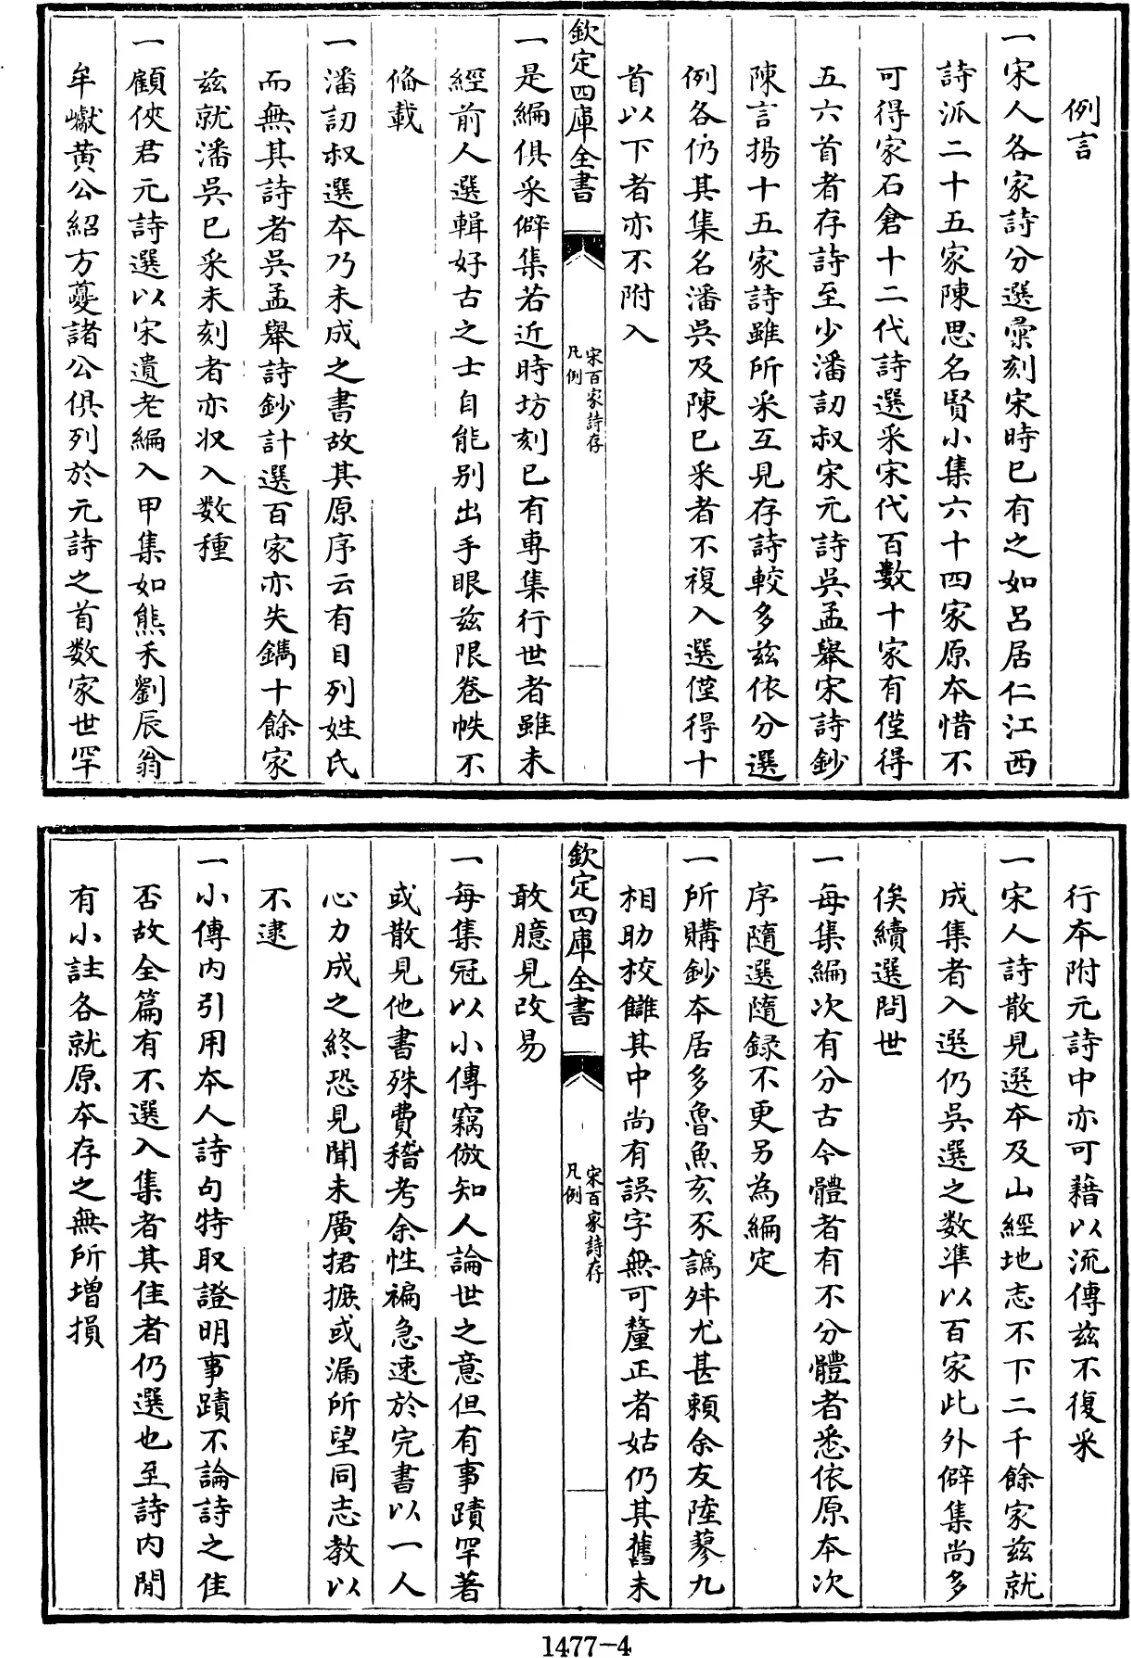 例言
一宋人各家詩分選彚刻宋時已有之如呂居仁江西
詩派二十五家陳思名賢小集六十四家原本惜不
可得家石倉十二代詩選采宋代百數十家有僅得
五六首者存詩至少潘訒叔宋元詩吳孟舉宋詩鈔
陳言揚十五家詩雖所采互見存詩較多兹依分選
例各仍其集名潘吳及陳已采者不複入選僅得十
首以下者亦不附入
欽定四庫全書
宋百家詩存
凡例
一是編俱采僻集若近時坊刻已有專集行世者雖未
經前人選輯好古之士自能别出手眼兹限卷帙不
俻載
一潘訒叔選本乃未成之書故其原序云有目列姓氏
而無其詩者吳孟舉詩鈔計選百家亦失鐫十餘家
兹就潘吳已采未刻者亦収入数種
一顧俠君元詩選以宋遺老編入甲集如熊禾劉辰翁
牟巘黄公紹方夔諸公俱列於元詩之首数家世罕
行本附元詩中亦可藉以流傳兹不復采
一宋人詩散見選本及山經地志不下二千餘家兹就
成集者入選仍吳選之数凖以百家此外僻集尚多
俟續選問世
一每集編次有分古今體者有不分體者悉依原本次
序隨選隨録不更另為編定
一所購鈔本居多魯魚亥豕譌舛尤甚賴余友陸蓼九
相助校讎其中尚有誤字無可釐正者姑仍其舊未
欽定四庫全書
宋百家詩存
凡例
敢臆見改易
一每集冠以小傳竊倣知人論世之意但有事蹟罕著
或散見他書殊費稽考余性褊急速於完書以一人
心力成之終恐見聞未廣捃摭或漏所望同志教以
不逮
一小傳内引用本人詩句特取證明事蹟不論詩之佳
否故全篇有不選入集者其佳者仍選也至詩内閒
有小註各就原本存之無所增損
1477-4